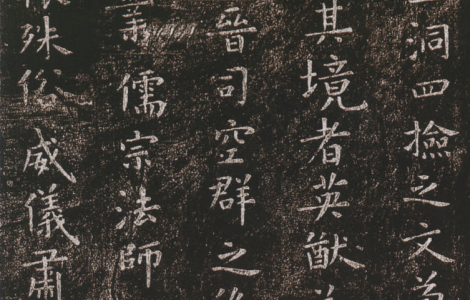 洞四撿之文
其境者英猷
晉司空群之後
業儒宗法師
殊俗威儀肅